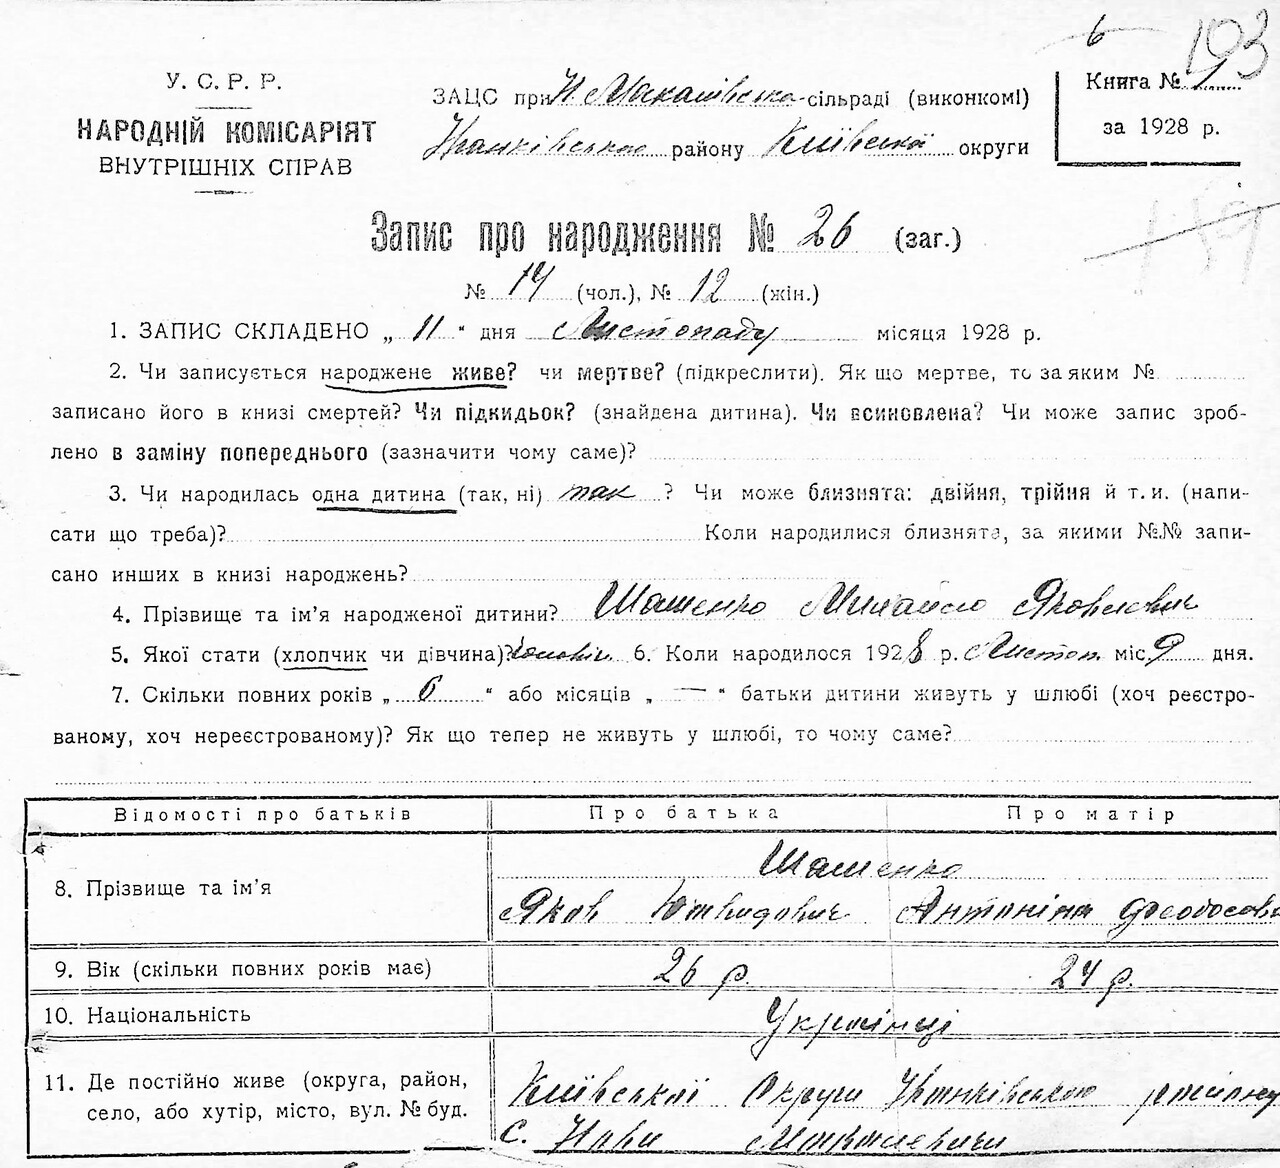 6 193
У. С. Р. Р.
НАРОДНІЙ КОМІСАРІЯТ
ВНУТРІШНІХ СПРАВ
ЗАЦС при Н Макалівська сільраді (виконкомі)
району Київської округи
Книга № 1
за 1928 р.
Запис про народження № 26 (заг.)
№ 14 (чол.), № 12 (жін.)
1. ЗАПИС СКЛАДЕНО „ 11 “ дня Листопаду місяця 1928 р.
2. Чи записується народжене живе? чи мертве? (підкреслити). Як що мертве, то за яким №
записано його в книзі смертей? Чи підкидьок? (знайдена дитина). Чи всиновлена? Чи може запис зроб-
лено в заміну попереднього (зазначити чому саме)?
3. Чи народилась одна дитина (так, ні) так ? Чи може близнята: двійня, трійня й т. и. (напи-
сати що треба)? Коли народилися близнята, за якими №№ запи-
сано инших в книзі народжень?
4. Прізвище та ім’я народженої дитини? Шашенко Михайло Яковлевич
5. Якої стати (хлопчик чи дівчина)? 6. Коли народилося 1928 р. Листоп. міс. 9 дня.
7. Скільки повних років „ 6 “ або місяців „ — “ батьки дитини живуть у шлюбі (хоч реєстро-
ваному, хоч нереєстрованому)? Як що тепер не живуть у шлюбі, то чому саме?
Відомості про батьків Про батька Про матір
8. Прізвище та ім’я Шашенко
Яков Антоніна
9. Вік (скільки повних років має) 26 р. 24 р.
10. Національність Українці
11. Де постійно живе (округа, район,
село, або хутір, місто, вул. № буд.
Київської Округи району
с. Нові